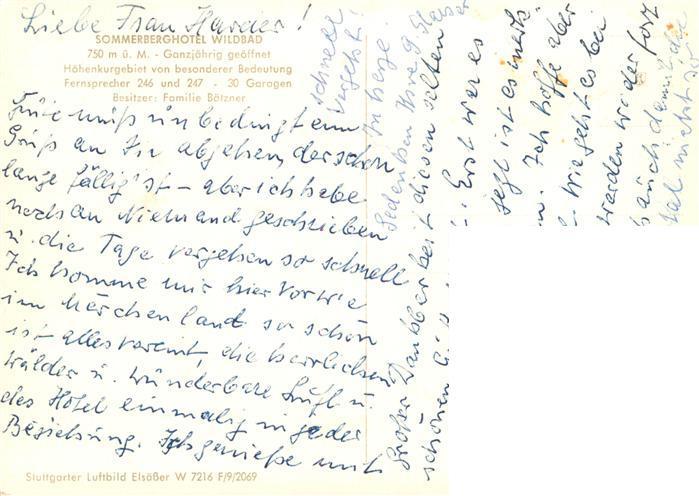 Liebe Frau Harder!
SOMMERBERGHOTEL WILDBAD
750 m ü. M. - Ganzjährig geöffnet
Höhenkurgebiet von besonderer Bedeutung
Fernsprecher 246 und 247 - 30 Garagen
Besitzer: Familie Bätzner
muß unbedingt ein
Gruß an Sie abgehen, der schon
lange fällig ist - aber ich habe
noch an Niemand geschrieben
u. die Tage vergehen so schnell
Ich komme mir hier vor wie
im Märchenland so schön
ist alles vereint, die herrlichen
Wälder u. wunderbare Luft u.
das Hotel einmalig in jeder
Beziehung. Ich genieße mit
großer Dankbarkeit diesen selten
schönen
Erst war es
jetzt ist es
Ich hoffe aber
Wie geht es bei
werden wieder fort
auch damit die
schnell
vergeht!
In herzl.
Gedenken Ihre
Stuttgarter Luftbild Elsäßer W 7216 F/9/2069